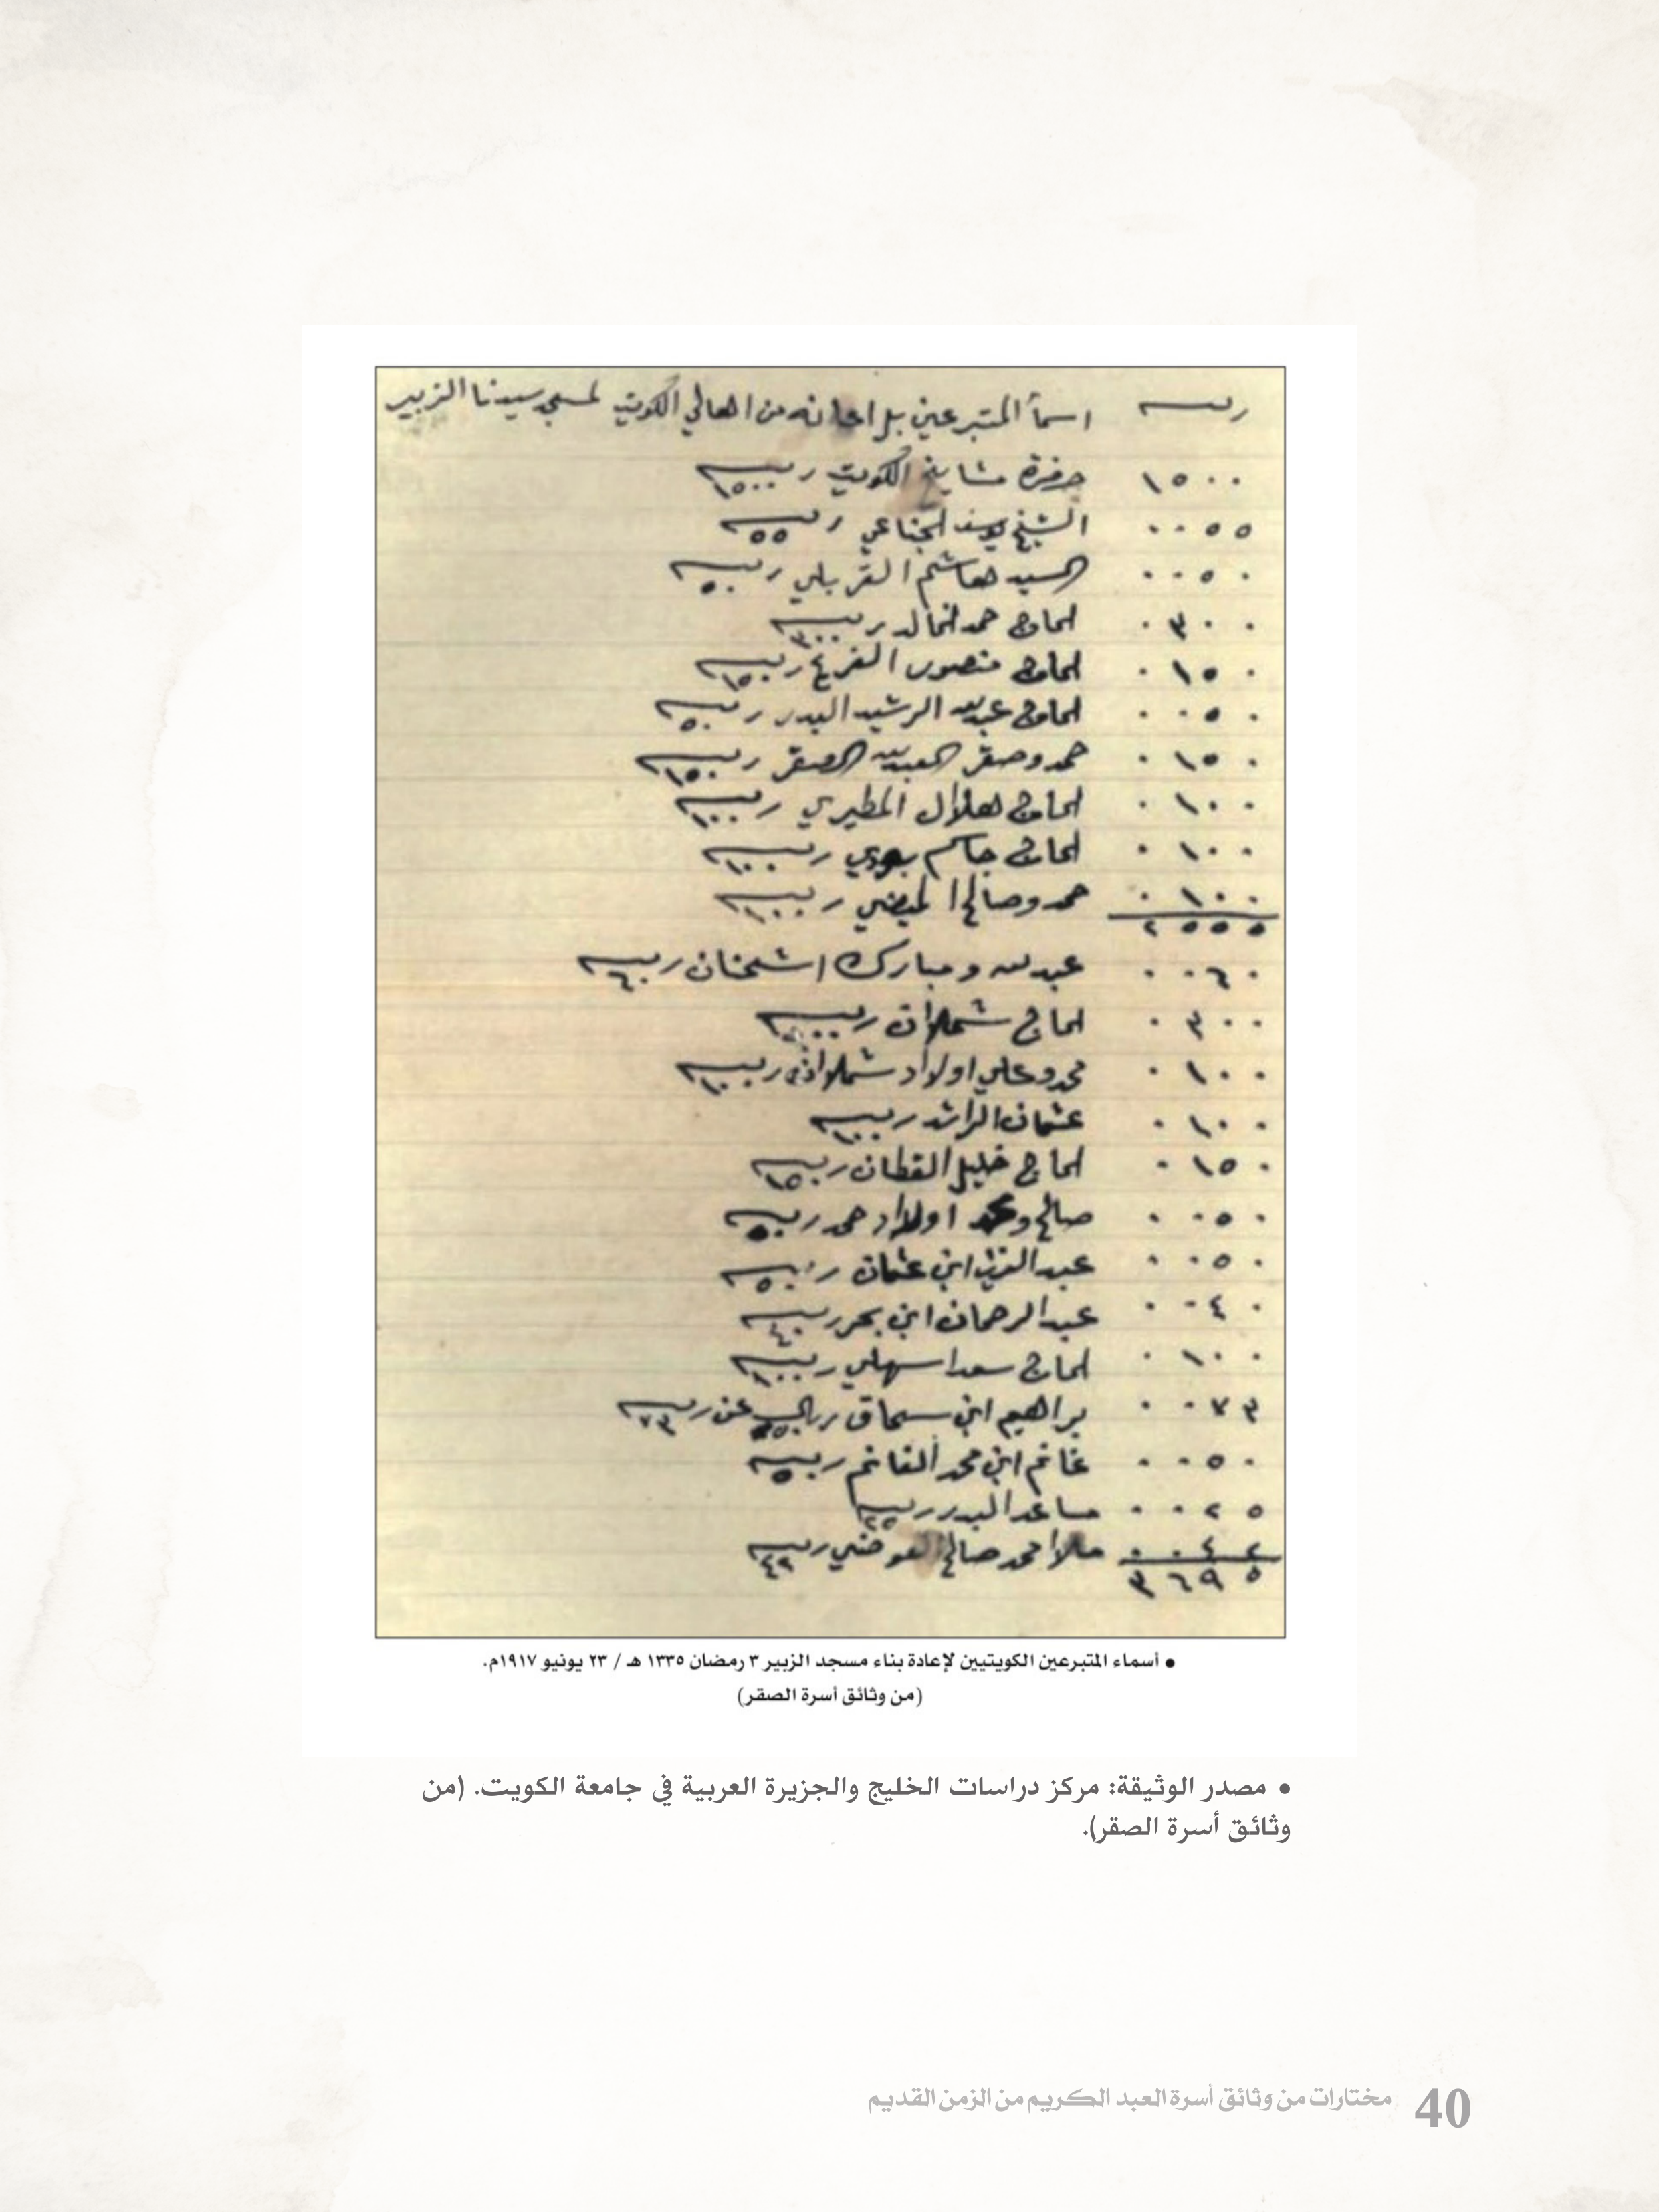 ربيه اسمآ المتبرعين بل اعانه من اهالي الكويت لمسجد سيدنا الزبير
١٥٠٠ حضرة مشايخ الكويت ربيه ١٥٠٠
٠٠٥٥ الشيخ يوسف الجناعي ربيه ٥٥
٠٠٥٠ السيد هاشم القربلي ربيه ٥٠
٠٣٠٠ الحاج حمد الخالد ربيه ٣٠٠
٠١٥٠ الحاج منصور ربيه ١٥٠
٠٠٥٠ الحاج عبدالله الرشيد البدر ربيه ٥٠
٠١٥٠ حمد وصقر العبدالله الصقر ربيه ١٥٠
٠١٠٠ الحاج هلال المطيري ربيه ١٠٠
٠١٠٠ الحاج جاسم بودي ربيه ١٠٠
٠١٠٠ حمد وصالح ربيه ١٠٠
٢٥٥٥
٠٠٦٠ عبدالله ومبارك ربيه ٦٠
٠٣٠٠ الحاج شملان ربيه ٣٠٠
٠١٠٠ محمد وعلي اولاد شملان ربيه ١٠٠
٠١٠٠ عثمان الراشد ربيه ١٠٠
٠١٥٠ الحاج خليل القطان ربيه ١٥٠
٠٠٥٠ صالح ومحمد اولاد حمد ربيه ٥٠
٠٠٥٠ عبدالعزيز ابن عثمان ربيه ٥٠
٠٠٤٠ عبدالرحمان ابن بحر ربيه ٤٠
٠١٠٠ الحاج سعد اسهلي ربيه ١٠٠
٠٠٧٣ براهيم ابن سحاق عن ربيه ٧٣
٠٠٥٠ غانم ابن محمد الغانم ربيه ٥٠
٠٠٢٥ مساعد البدر ربيه ٢٥
٠٠٤٢ ملا محمد صالح العوضي ربيه ٤٢
٣٦٩٥
• أسماء المتبرعين الكويتيين لإعادة بناء مسجد الزبير ٣ رمضان ١٣٣٥ هـ / ٢٣ يونيو ١٩١٧م.
(من وثائق أسرة الصقر)
• مصدر الوثيقة: مركز دراسات الخليج والجزيرة العربية في جامعة الكويت. (من
وثائق أسرة الصقر).
40 مختارات من وثائق أسرة العبد الكريم من الزمن القديم